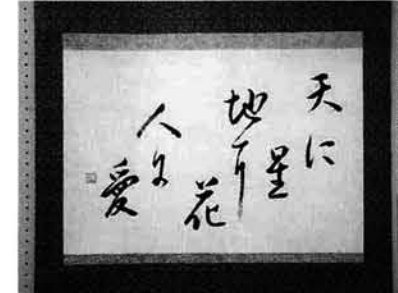 天に
星
地に
花
人に
愛